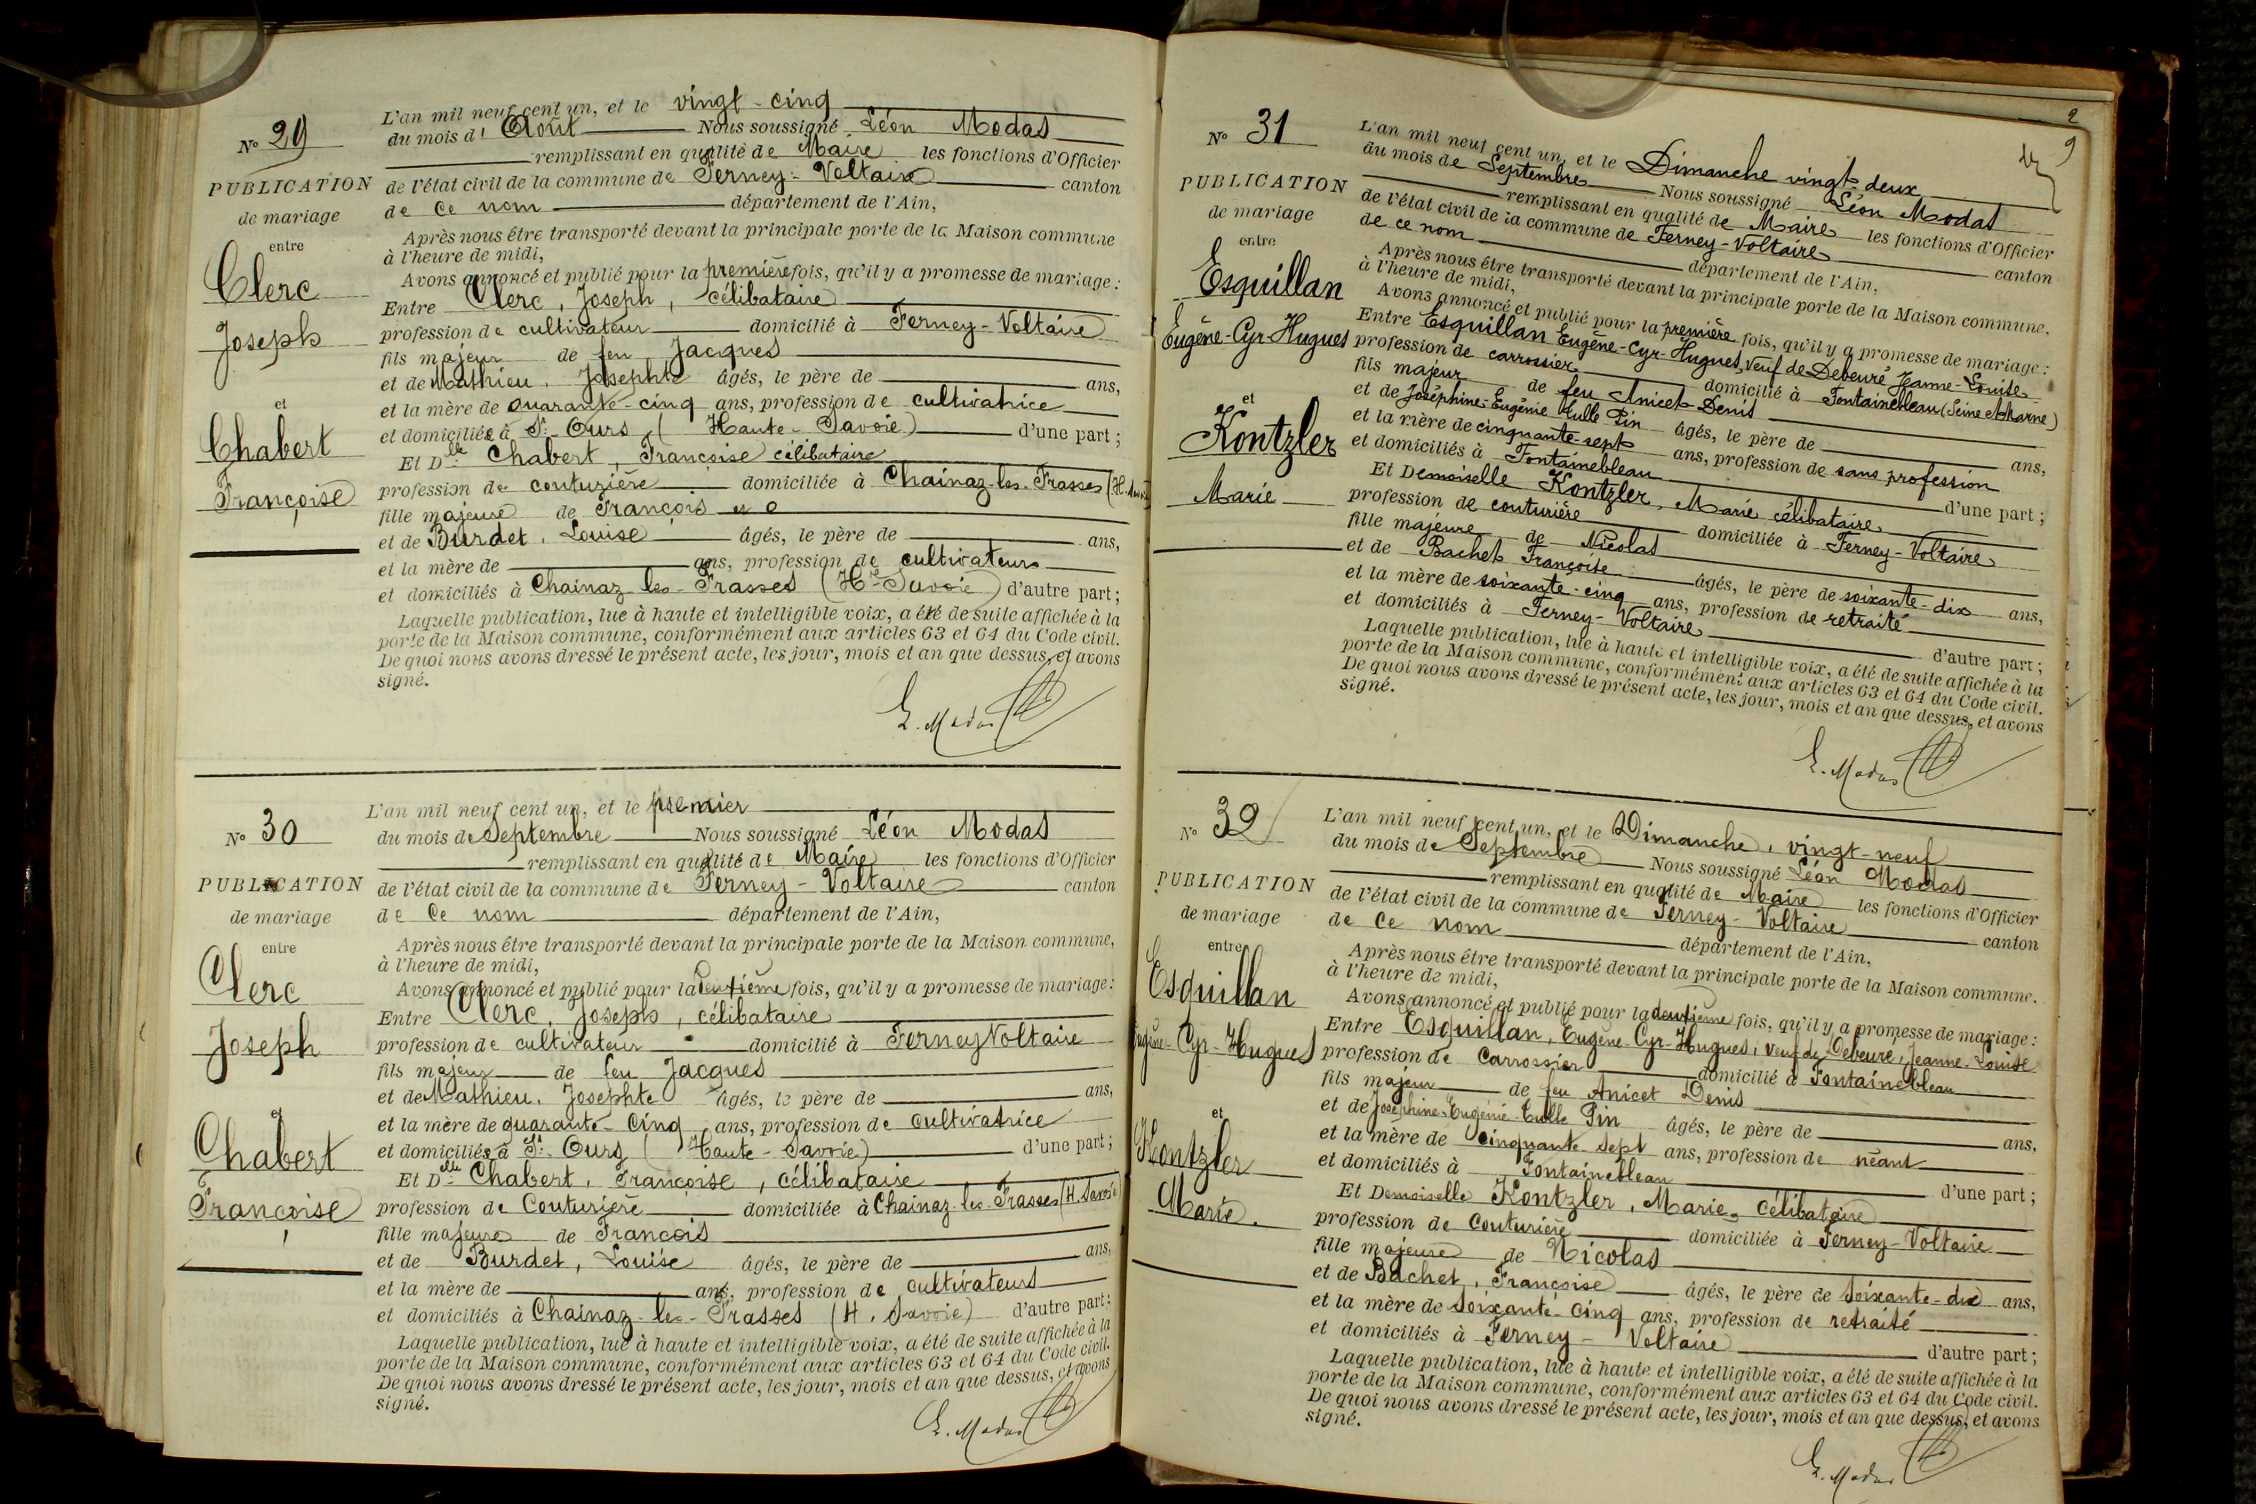 No 29
PUBLICATION
de mariage
entre
Clerc
Joseph
et
Chabert
Françoise
L'an mil neuf cent un, et le vingt-cinq
du mois d' Août Nous soussigné Léon Modas
remplissant en qualité de Maire les fonctions d'Officier
de l'état civil de la commune de Ferney-Voltaire canton
de ce nom département de l'Ain,
Après nous être transporté devant la principale porte de la Maison commune
à l'heure de midi,
Avons annoncé et publié pour la première fois, qu'il y a promesse de mariage :
Entre Clerc, Joseph, célibataire
profession de cultivateur domicilié à Ferney-Voltaire
fils majeur de feu Jacques
et de Mathieu, Josephte âgés, le père de ans,
et la mère de quarante-cinq ans, profession de cultivatrice
et domiciliés à St Ours (Haute-Savoie) d'une part ;
Et Dlle Chabert, Françoise célibataire
profession de couturière domiciliée à Chainaz-les-Frasses
fille majeure de François
et de Burdet, Louise âgés, le père de ans,
et la mère de ans, profession de cultivateurs
et domiciliés à Chainaz-les-Frasses (Hte Savoie) d'autre part ;
Laquelle publication, lue à haute et intelligible voix, a été de suite affichée à la
porte de la Maison commune, conformément aux articles 63 et 64 du Code civil.
De quoi nous avons dressé le présent acte, les jour, mois et an que dessus, et avons
signé.
L. Modas
No 30
PUBLICATION
de mariage
entre
Clerc
Joseph
et
Chabert
Françoise
L'an mil neuf cent un, et le premier
du mois de Septembre Nous soussigné Léon Modas
remplissant en qualité de Maire les fonctions d'Officier
de l'état civil de la commune de Ferney-Voltaire canton
de Ce nom département de l'Ain,
Après nous être transporté devant la principale porte de la Maison commune,
à l'heure de midi,
Avons annoncé et publié pour la deuxième fois, qu'il y a promesse de mariage :
Entre Clerc, Joseph, célibataire
profession de cultivateur domicilié à Ferney Voltaire
fils majeur de feu Jacques
et de Mathieu, Josephte âgés, le père de ans,
et la mère de quarante-cinq ans, profession de cultivatrice
et domiciliés à St Ours (Haute-Savoie) d'une part ;
Et Dlle Chabert, Françoise, célibataire
profession de Couturière domiciliée à Chainaz-les-Frasses (H. Savoie)
fille majeure de François
et de Burdet, Louise âgés, le père de ans,
et la mère de ans, profession de cultivateurs
et domiciliés à Chainaz-les-Frasses (H. Savoie) d'autre part ;
Laquelle publication, lue à haute et intelligible voix, a été de suite affichée à la
porte de la Maison commune, conformément aux articles 63 et 64 du Code civil.
De quoi nous avons dressé le présent acte, les jour, mois et an que dessus, et avons
signé.
L. Modas
2
9
No 31
PUBLICATION
de mariage
entre
Esquillan
Eugène-Cyr-Hugues
et
Kontzler
Marie
L'an mil neuf cent un, et le Dimanche vingt-deux
du mois de Septembre Nous soussigné Léon Modas
remplissant en qualité de Maire les fonctions d'Officier
de l'état civil de la commune de Ferney-Voltaire canton
de ce nom département de l'Ain,
Après nous être transporté devant la principale porte de la Maison commune.
à l'heure de midi,
Avons annoncé et publié pour la première fois, qu'il y a promesse de mariage :
Entre Esquillan Eugène-Cyr-Hugues, Veuf de Debeuré Jeanne-Louise
profession de carrossier domicilié à Fontainebleau (Seine et Marne)
fils majeur de feu Anicet Denis
et de Joséphine-Eugénie Tulle Pin âgés, le père de ans,
et la mère de cinquante-sept ans, profession de sans profession
et domiciliés à Fontainebleau d'une part ;
Et Demoiselle Kontzler, Marie célibataire
profession de couturière domiciliée à Ferney-Voltaire
fille majeure de Nicolas
et de Bachet Françoise âgés, le père de soixante-dix ans,
et la mère de soixante-cinq ans, profession de retraité
et domiciliés à Ferney-Voltaire d'autre part ;
Laquelle publication, lue à haute et intelligible voix, a été de suite affichée à la
porte de la Maison commune, conformément aux articles 63 et 64 du Code civil.
De quoi nous avons dressé le présent acte, les jour, mois et an que dessus, et avons
signé.
L. Modas
No 32
PUBLICATION
de mariage
entre
Esquillan
Eugène-Cyr-Hugues
et
Kontzler
Marie.
L'an mil neuf cent un, et le Dimanche, vingt-neuf
du mois de Septembre Nous soussigné Léon Modas
remplissant en qualité de Maire les fonctions d'Officier
de l'état civil de la commune de Ferney-Voltaire canton
de Ce nom département de l'Ain,
Après nous être transporté devant la principale porte de la Maison commune.
à l'heure de midi,
Avons annoncé et publié pour la deuxième fois, qu'il y a promesse de mariage :
Entre Esquillan, Eugène-Cyr-Hugues, veuf de Debeuré, Jeanne-Louise
profession de Carrossier domicilié à Fontainebleau
fils majeur de feu Anicet Denis
et de Joséphine-Eugénie-Tulle Pin âgés, le père de ans,
et la mère de cinquante sept ans, profession de néant
et domiciliés à Fontainebleau d'une part ;
Et Demoiselle Kontzler, Marie, célibataire
profession de Couturière domiciliée à Ferney-Voltaire
fille majeure de Nicolas
et de Bachet, Françoise âgés, le père de soixante-dix ans,
et la mère de soixante-cinq ans, profession de retraité
et domiciliés à Ferney-Voltaire d'autre part ;
Laquelle publication, lue à haute et intelligible voix, a été de suite affichée à la
porte de la Maison commune, conformément aux articles 63 et 64 du Code civil.
De quoi nous avons dressé le présent acte, les jour, mois et an que dessus, et avons
signé.
L. Modas